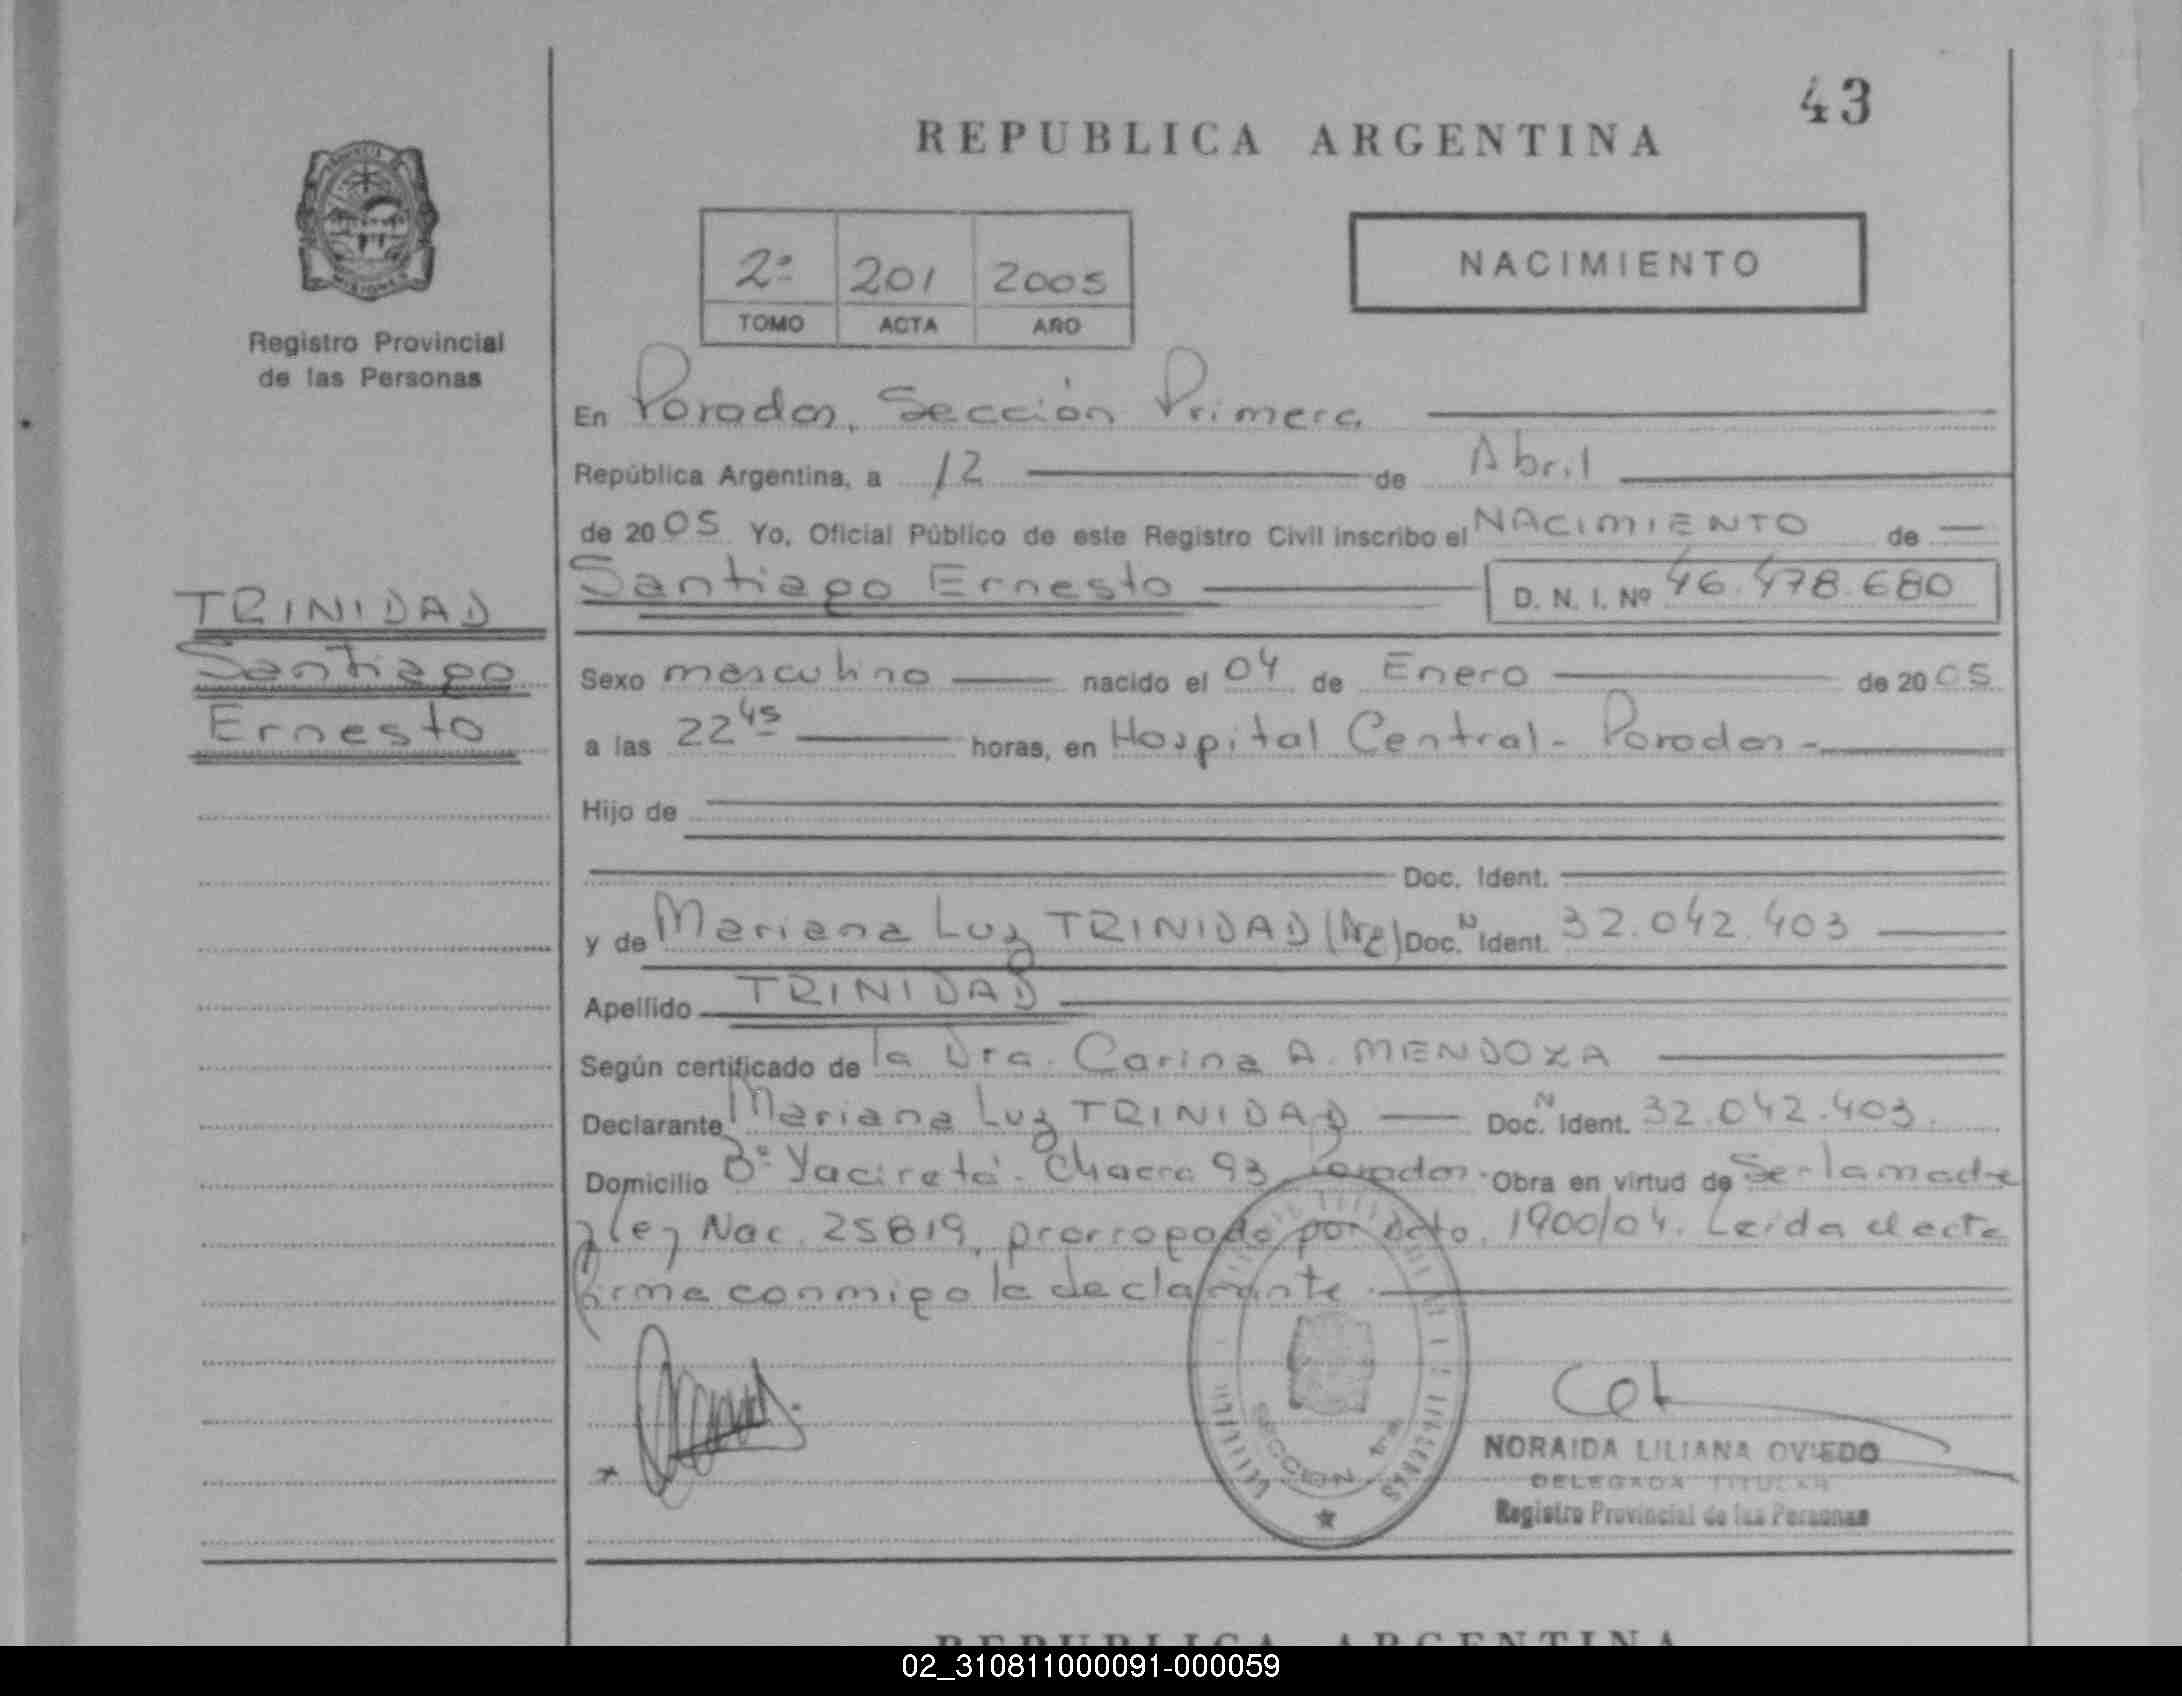 43
REPUBLICA ARGENTINA
2º 201 2005
TOMO ACTA AÑO
NACIMIENTO
Registro Provincial
de las Personas
TRINIDAD
Santiago
Ernesto
En Posadas, Sección Primera
República Argentina, a 12 de Abril
de 2005 Yo, Oficial Público de este Registro Civil inscribo el NACIMIENTO de
Santiago Ernesto D. N. I. Nº 46.478.680
Sexo masculino nacido el 04 de Enero de 2005
a las 22 45 horas, en Hospital Central - Posadas -
Hijo de
Doc. Ident.
y de Mariana Luz TRINIDAD (Arg) Doc. N Ident. 32.042.403
Apellido TRINIDAD
Según certificado de la Dra. Carina A. MENDOZA
Declarante Mariana Luz TRINIDAD Doc. N Ident. 32.042.403.
Domicilio Bº Yaciretá - Chacra 93, Posadas. Obra en virtud de Ser la madre
y ley Nac. 25819, prorrogado por Dcto. 1900/04. Leída el acta
firma conmigo la declarante.
SECCION 1ra
NORAIDA LILIANA OVIEDO
DELEGADA TITULAR
Registro Provincial de las Personas
REPUBLICA ARGENTINA
02_310811000091-000059